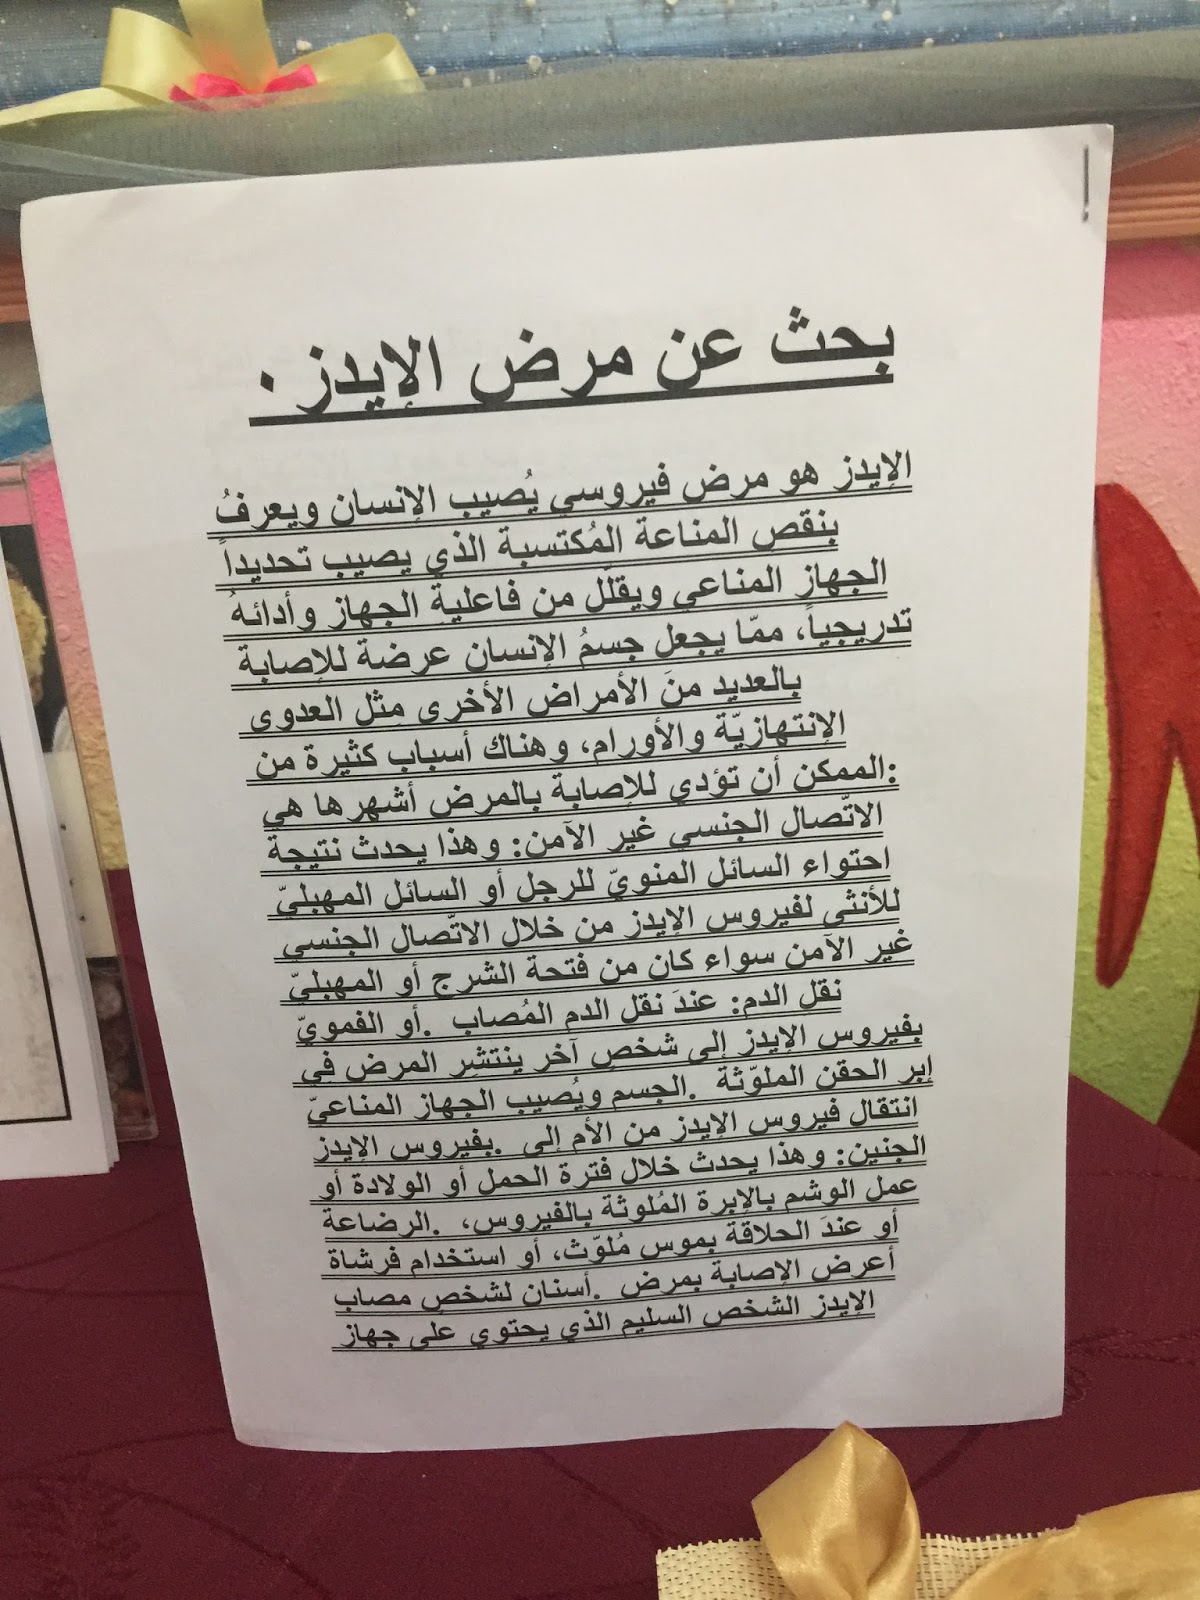 بحث عن مرض الإيدز.
الإيدز هو مرض فيروسي يُصيب الإنسان ويعرفُ
بنقص المناعة المُكتسبة الذي يصيب تحديداً
الجهاز المناعي ويقلّل من فاعلية الجهاز وأدائهُ
تدريجياً، ممّا يجعل جسمُ الإنسان عرضة للإصابة
بالعديد منَ الأمراض الأخرى مثل العدوى
الإنتهازيّة والأورام، وهناك أسباب كثيرة من
:الممكن أن تؤدي للإصابة بالمرض أشهرها هي
الاتّصال الجنسي غير الآمن: وهذا يحدث نتيجة
احتواء السائل المنويّ للرجل أو السائل المهبليّ
للأنثى لفيروس الإيدز من خلال الاتّصال الجنسي
غير الآمن سواء كان من فتحة الشرج أو المهبليّ
نقل الدم: عندَ نقل الدم المُصاب .أو الفمويّ
بفيروس الإيدز إلى شخصٍ آخر ينتشر المرض في
إبر الحقن الملوّثة .الجسم ويُصيب الجهاز المناعيّ
انتقال فيروس الإيدز من الأم إلى .بفيروس الإيدز
الجنين: وهذا يحدث خلال فترة الحمل أو الولادة أو
عمل الوشم بالإبرة المُلوثة بالفيروس، .الرضاعة
أو عندَ الحلاقة بموس مُلوّث، أو استخدام فرشاة
أعرض الإصابة بمرض .أسنان لشخصٍ مصاب
الإيدز الشخص السليم الذي يحتوي على جهاز